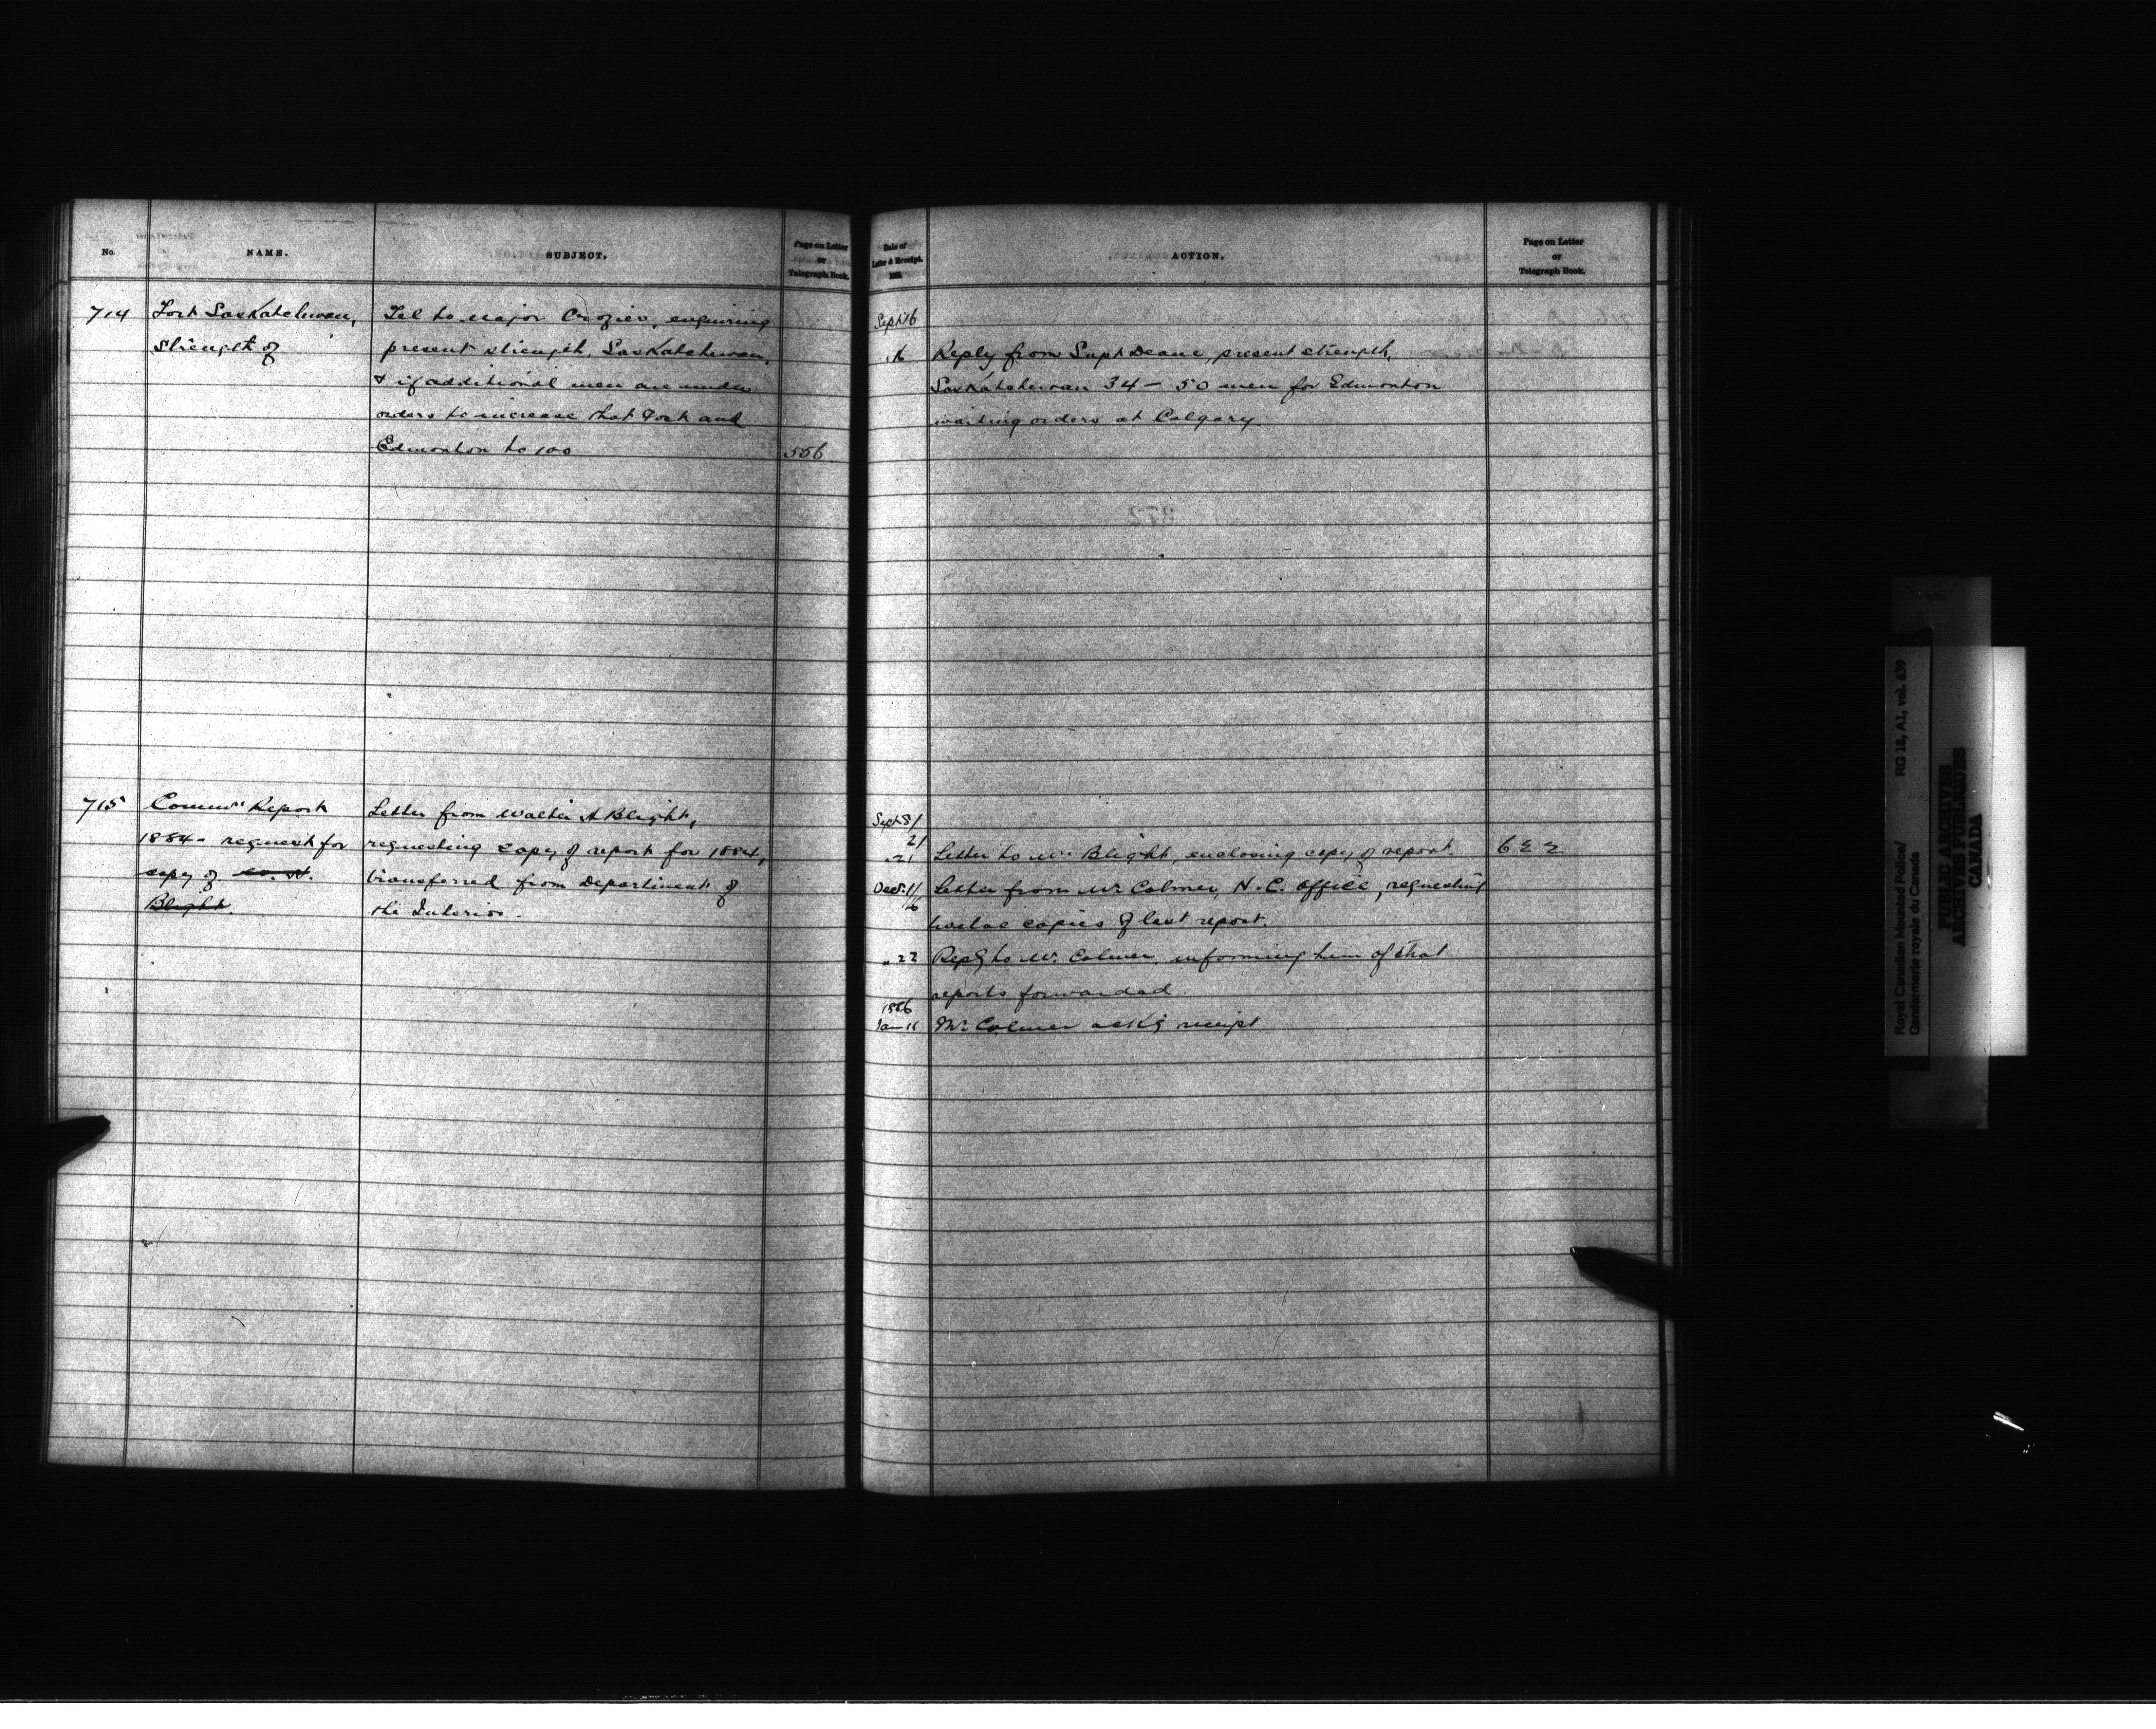 No.
NAME.
SUBJECT.
Page on Letter
or
Telegraph Book.
714
Fort Saskatchewan,
Strength of
Tel to Major Crozier, enquiring
present strength, Saskatchewan,
& if additional men are under
orders to increase that Fort and
Edmonton to 100
556
715
Commrs Report
1884 - request for
copy of W. A.
Blight.
Letter from Walter A Blight,
requesting copy of report for 1884,
transferred from Department of
the Interior.
Date of
Letter & Receipt.
188
ACTION.
Page on Letter
or
Telegraph Book.
Sept 16
" 16
Reply from Supt Deane, present strength,
Saskatchewan 34 - 50 men for Edmonton
waiting orders at Calgary
Sept 8/
21
" 21
Letter to Mr Blight, enclosing copy of report.
622
Decr. 1/
16
Letter from Mr Colmer, H. C. Office, requesting
twelve copies of last report.
" 22
Reply to Mr. Colmer, informing him of that
reports forwarded.
1886
Jan 11
Mr Colmer ackg receipt
Royal Canadian Mounted Police/
Gendarmerie royale du Canada
RG 18, A1, vol. 639
PUBLIC ARCHIVES
ARCHIVES PUBLIQUES
CANADA